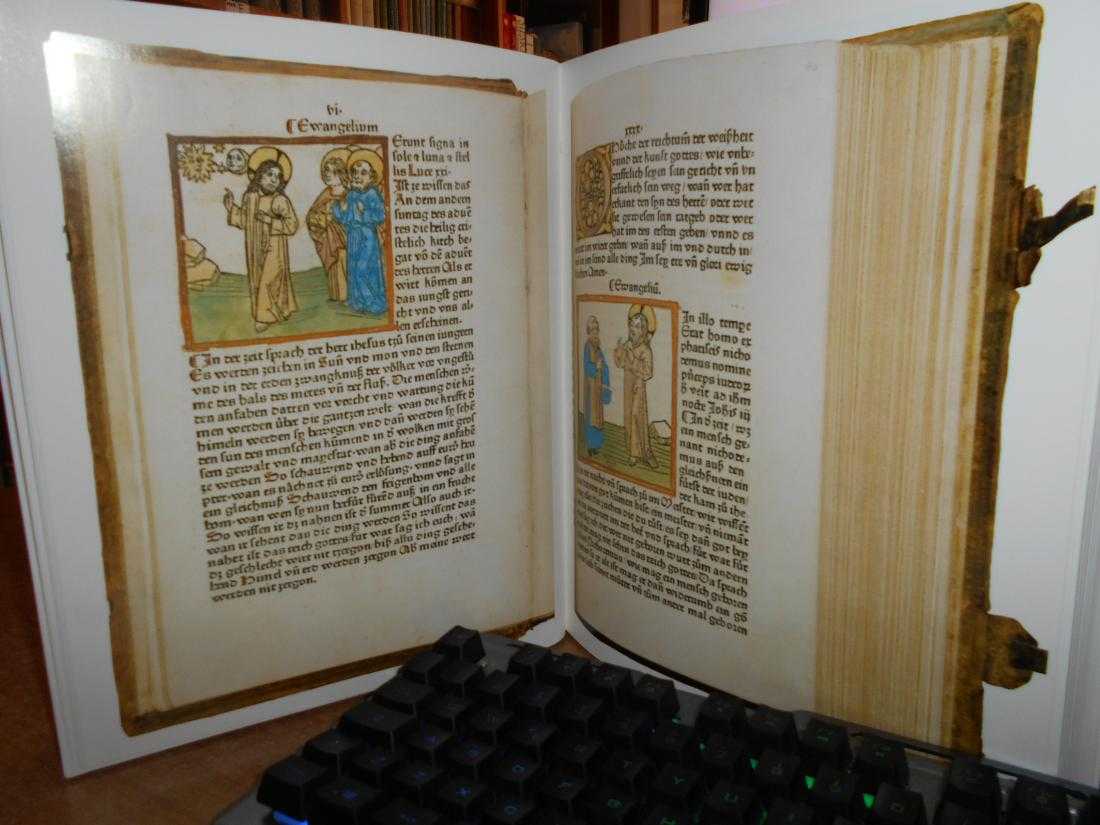 vi·
¶Ewangelium
Erunt signa in
sole ⁊ luna ⁊ stel
lis Luce xxi·
Ist ze wissen das
An dem andern
suntag des aduē
tes die heilig cri-
stelich kirch be-
gat vō dē aduēt
des herren Als er
wirt kōmen an
das iungst geri-
cht vnd vns al-
len erscheinen·
¶In der zeit sprach der herr ihesus tzū seinen iungern
Es werden zeichen in Sun̄ vnd mon vnd den sternen
vnd in der erden zwangknuß der völker vor vngestū
me des hals des meres vn̄ der fluß· Die menschen
den anfahen dorren vor vorcht vnd wartung die kū
men werden über die gantzen welt· wan die krefft d̄
himeln werden sy bewegen· vnd dan̄ werden sy sehē
den sun des menschen kūmend in d̄ wolken mit gros
sem gewalt vnd mayestat· wan ab die ding anfahē
ze werden So schauwend vnd hebend auff eurō heu
pter· wan es nāchnet zū eurō erlōsung· vnnd sagt in
ein gleichnuß Schauwend den feigenbom vnd alle
bom· wan wen sy nun herfür auß in ein frucht
So wissen ir dz nahnen ist d̄ summer Also auch ir·
wan ir sehent dan die ding werden So wissent das
nahet ist das reich gottes· für war sag ich euch· wā
dz geschlecht wirt nit tzergon· biß allu ding gesche-
hend Himel vn̄ erd werden zergon Ab meine wort
werden nit zergon·
xxx·
O Höche der reichtum̄ der weißheit
vnnd der kunst gottes· wie vnbe-
greifflich seyen sin gericht vn̄ vn
erfarlich sein weg / wan̄ wer hat
erkant den syn des herrē oder wer
ist gewesen sin ratgeb oder wer
hat im des ersten geben· vnnd es
wirt im wider geben· wan̄ auß im vnd durch in·
vn̄ in im sind alle ding Im sey ere vn̄ glori ewig
klichen Amen·
¶Ewangeliū·
In illo tempe
Erat homo ex
phariseis nicho
demus nomine
p̄nceps iudeorꝝ
h̄ veit ad ihm
nocte Johīs iij
¶In d̄ zeit / wz
ein mensch ge-
nant nichode-
mus auß den
gleichßnern ein
fürst der iuden
der kam zū ihe-
in der nacht vn̄ sprach zū im Meister wir wissēt
das du von got kūmen bist ein meister· vn̄ niemāt
mag die zaichen die du tūst· es sey dan̄ got bey
im· antwort im der her vnd sprach für war für
war sag ich dir wer nit geborn wurt zūm andern
mal der mag nit sehen das reich gottes· Da sprach
nichodemus· wie mag ein mensch geborn
werden so er alt ist· mag er dan̄ widerumb ein gō
in seiner mūter vn̄ zūm ander mal geboren